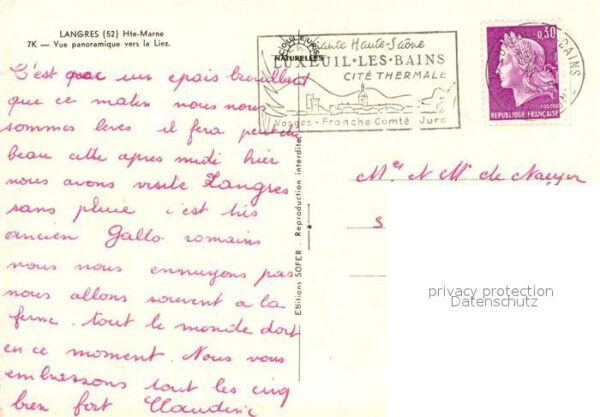 LANGRES (52) Hte-Marne
7K — Vue panoramique vers la Liez.
C'est avec un epais brouillard
que ce matin nous nous
sommes levés il fera peut être
beau cette apres midi hier
nous avons visité Langres
sans pluie c'est très
ancien Gallo romains
nous nous ennuyons pas
nous allons souvent a la
ferme. tout le monde dort
en ce moment. Nous vous
embrassons tout les cinq
bien fort Claudine
COULEURS
NATURELLES
Haute-Saône
LUXEUIL-LES-BAINS
CITÉ THERMALE
Vosges-Franche-Comté Jura
0,30
POSTES
REPUBLIQUE FRANÇAISE
BAINS
Editions SOFER - Reproduction interdite
Mr et Me de
S
privacy protection
Datenschutz